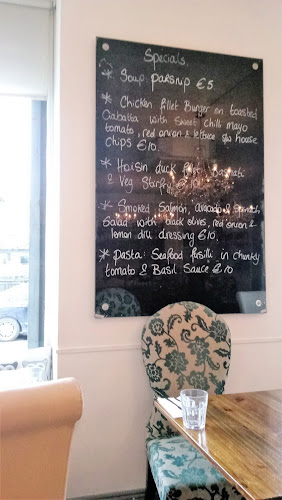 Specials
* Soup: parsnip €5.
* Chicken fillet Burger on toasted
Ciabatta with sweet chilli mayo
tomato, red onion & lettuce s/w house
chips €10.
* Hoisin duck
& Veg Stirfry €10
* Smoked Salmon, avocado & Spinach
Salad with black olives, red onion &
lemon dill dressing €10.
* Pasta: Seafood fusilli in chunky
tomato & Basil Sauce €10